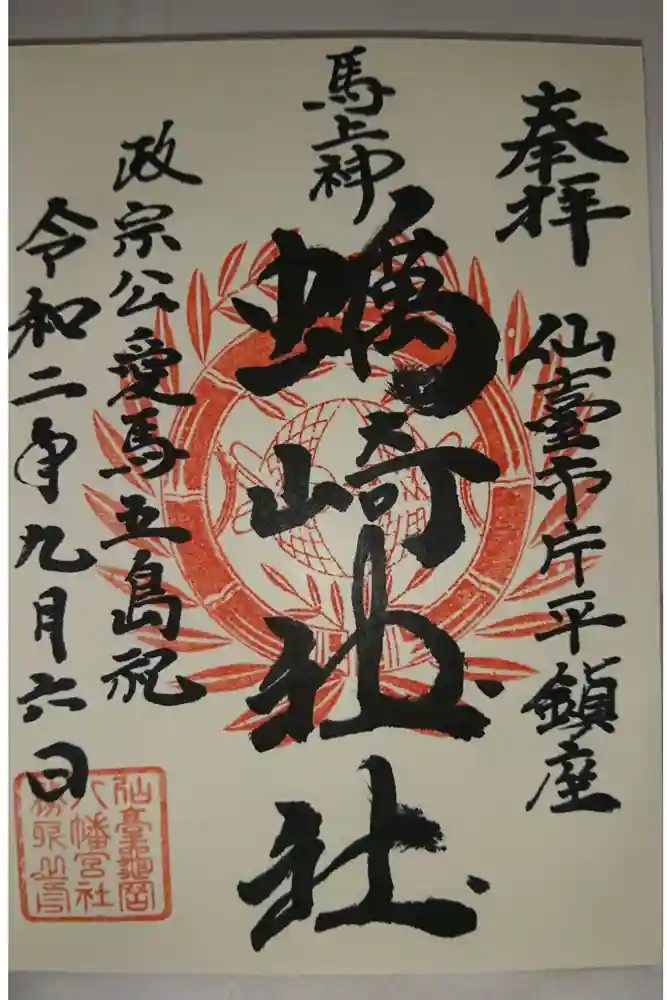 奉拝
仙臺市片平鎮座
馬上神
蠣崎神社
政宗公愛馬五島祀
令和二年九月六日
仙臺龜岡
八幡宮社
務所之印